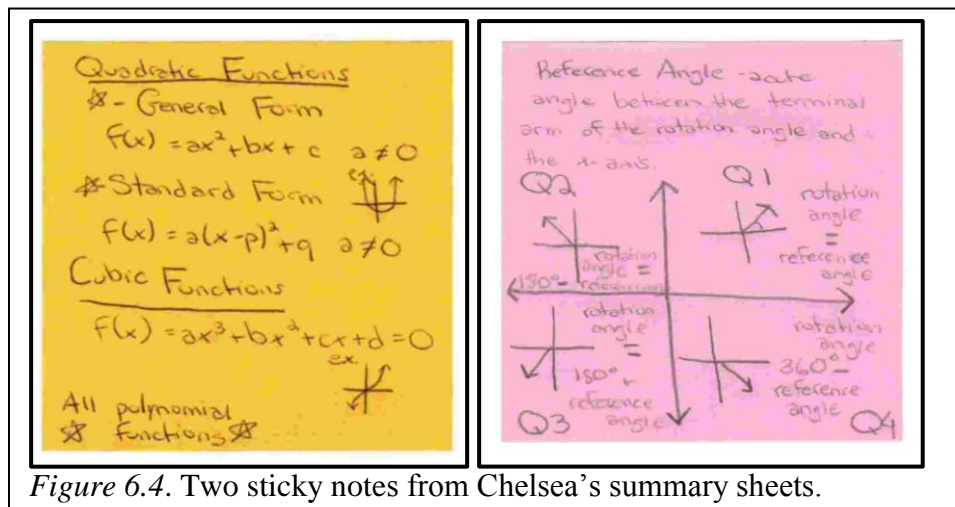 Quadratic Functions
☆ - General Form
f(x) = ax² + bx + c a ≠ 0
ex.
☆ - Standard Form
f(x) = a(x-p)² + q a ≠ 0
Cubic Functions
f(x) = ax³ + bx² + cx + d = 0
ex.
All polynomial
☆ functions ☆
Reference Angle - acute
angle between the terminal
arm of the rotation angle and
the x-axis.
Q2
rotation
angle =
180° - reference
Q1
rotation
angle
=
reference
angle
rotation
angle
=
180° +
reference
angle
Q3
rotation
angle
=
360° -
reference
angle
Q4
Figure 6.4. Two sticky notes from Chelsea's summary sheets.